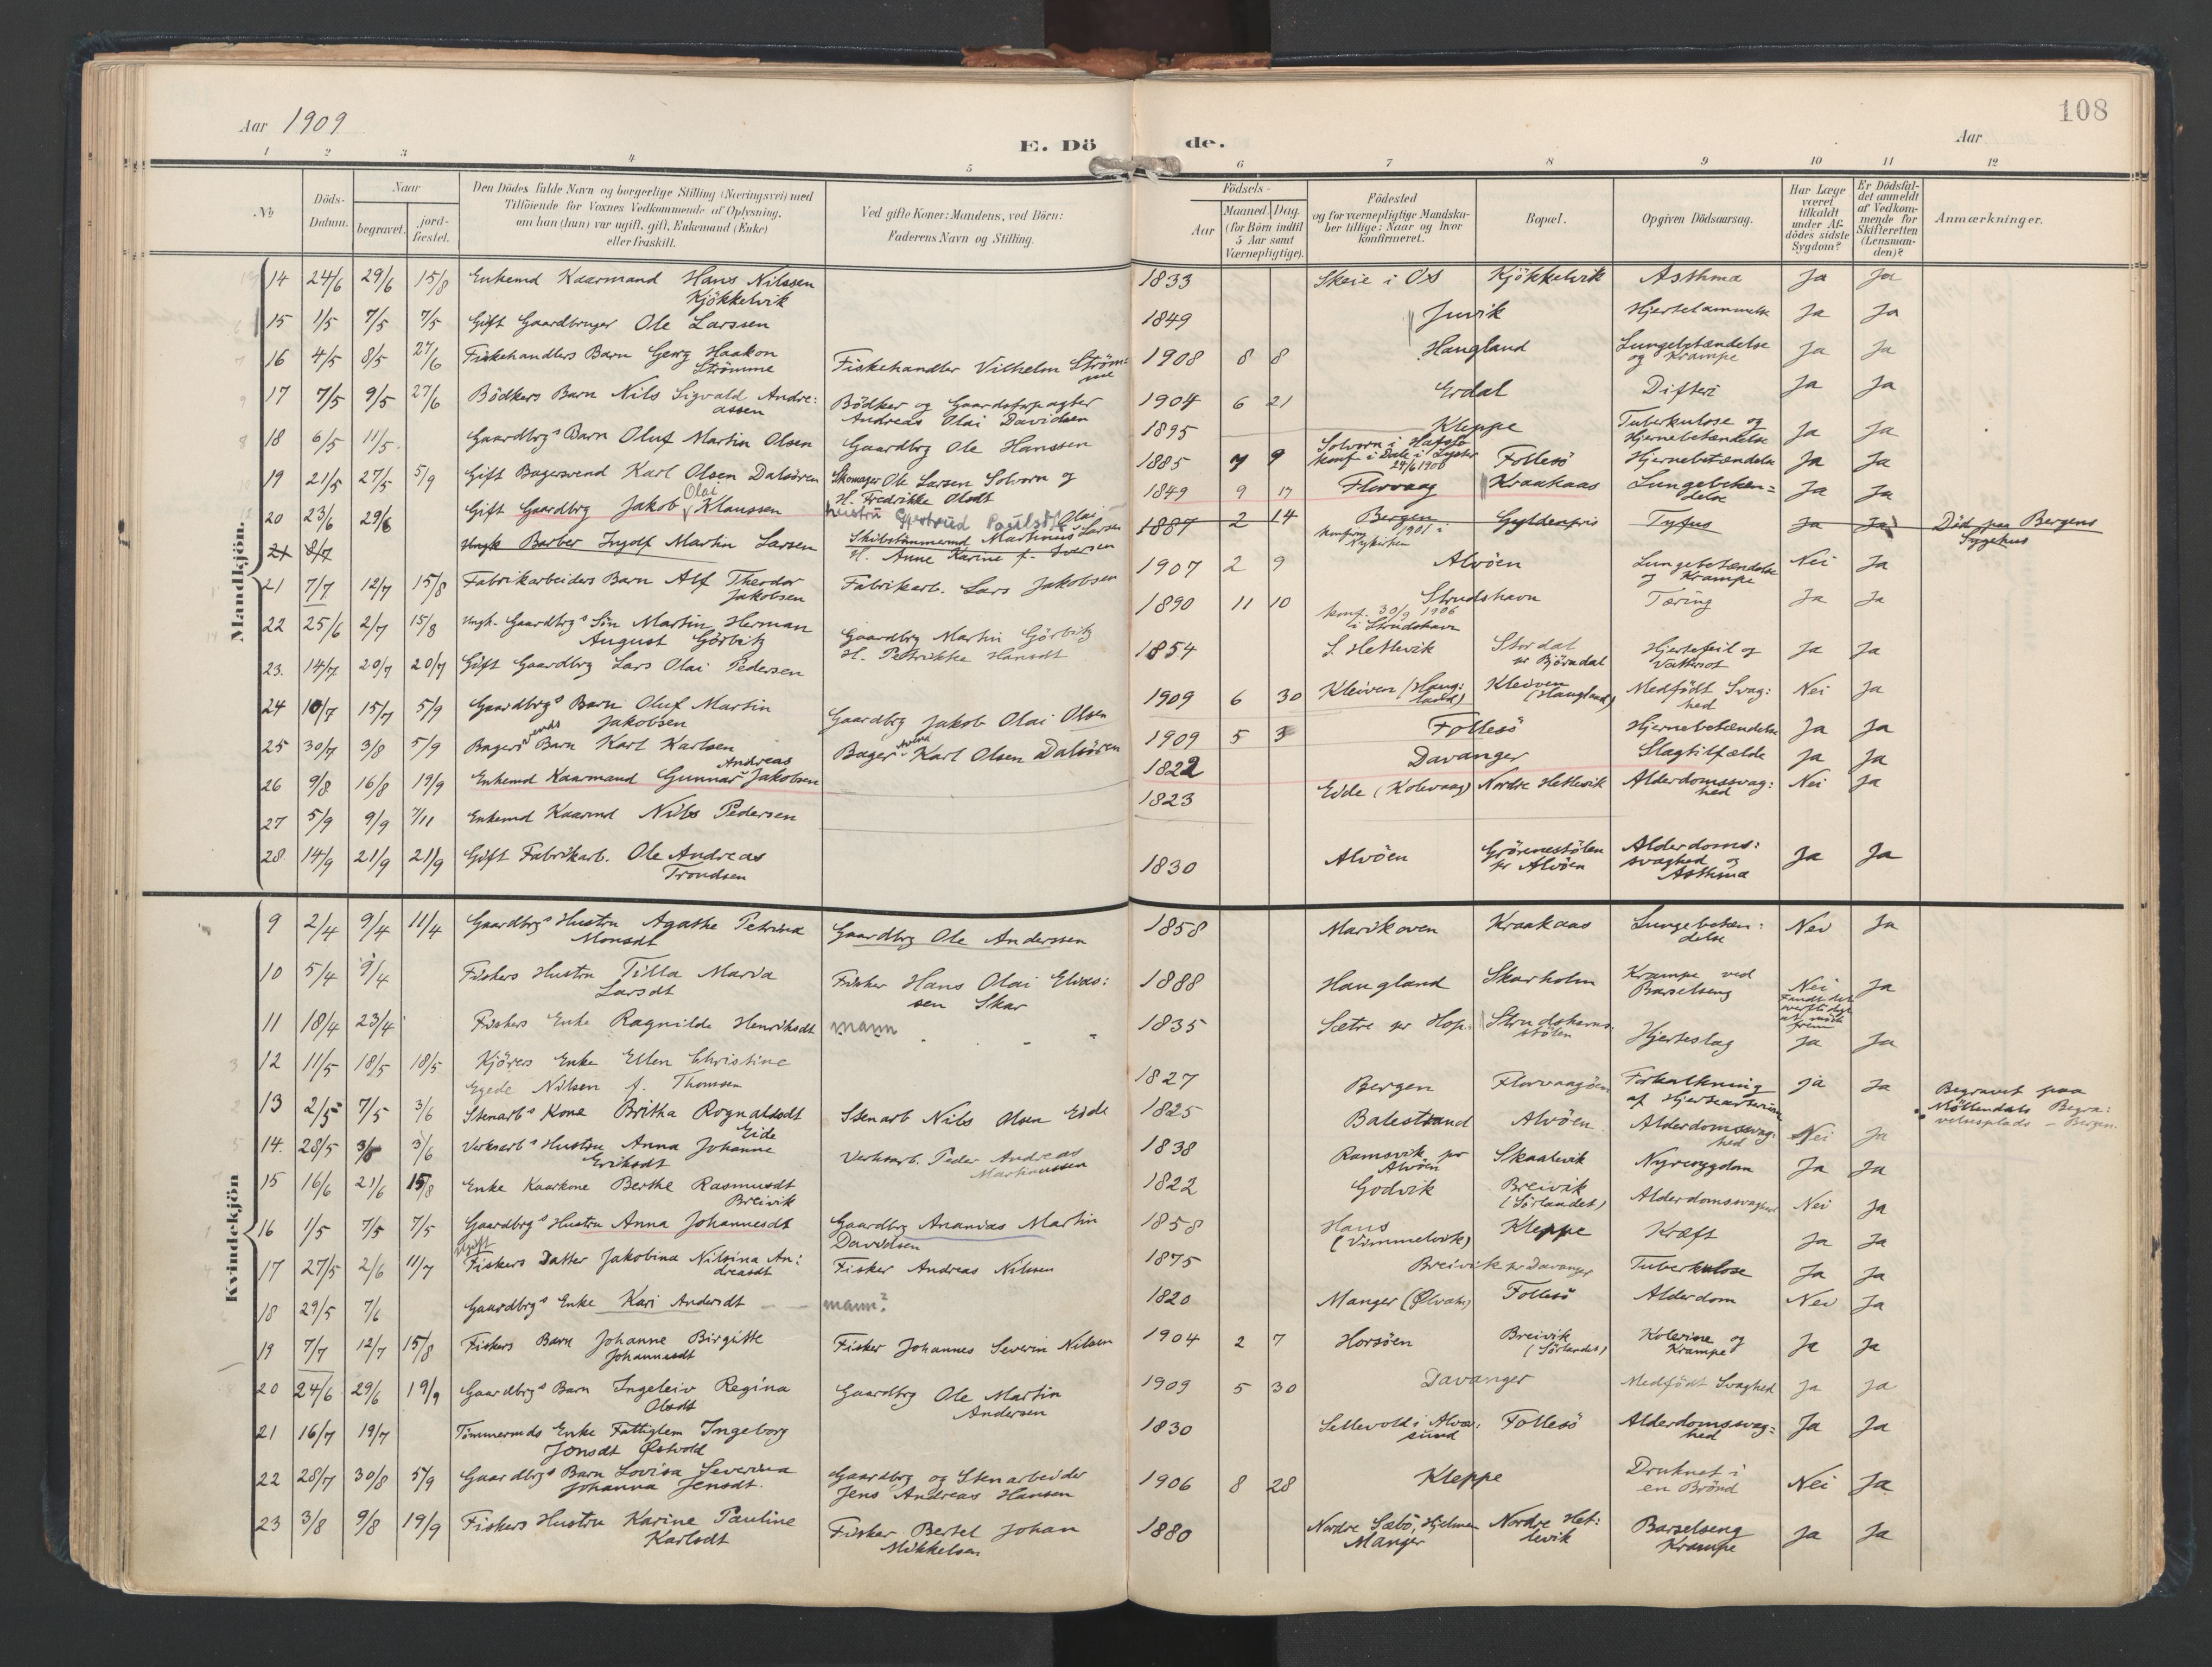 108
Aar 1909
E. Dö de.
Aar
1 2 3 4 5 6 7 8 9 10 11 12
No
Döds-Datum.
Naar
begravet.
jord-fæstet.
Den Dödes fulde Navn og borgerlige Stilling (Næringsvei) med
Tilföiende for Voxnes Vedkommende af Oplysning,
om han (hun) var ugift, gift, Enkemand (Enke)
eller fraskilt.
Ved gifte Koner: Mandens, ved Börn:
Faderens Navn og Stilling.
Födsels-
Aar
Maaned. Dag.
(for Börn indtil
5 Aar samt
Værnepligtige).
Födested
og for værnepligtige Mandska-
ber tillige: Naar og hvor
konfirmeret.
Bopæl.
Opgiven Dödsaarsag.
Har Læge
været
tilkaldt
under Af-
dödes sidste
Sygdom?
Er Dödsfal-
det anmeldt
af Vedkom-
mende for
Skifteretten
(Lensman-
den)?
Anmærkninger.
Mandkjön.
14 24/6 29/6 15/8 Enkemd Kaarmand Hans Nilssen 1833 Skeie i Os Kjökkelvik Asthma Ja Ja
Kjökkelvik
15 1/5 7/5 7/5 Gift Gaardbruger Ole Larssen 1849 Juvik Hjertelammelse Ja Ja
16 4/5 8/5 27/6 Fiskehandlers Barn Georg Haakon Fiskehandler Vilhelm Ström- 1908 8 8 Haugland Lungebetændelse Ja Ja
Strömme me og Krampe
17 7/5 9/5 27/6 Bödkers Barn Nils Sigvald Andre: Bödker og Gaardsforpagter 1904 6 21 Erdal Difteri Ja Ja
assen Andreas Olai Davidsen
18 6/5 11/5 Gaardbrgs Barn Oluf Martin Olsen Gaardbrg Ole Hanssen 1895 Kleppe Tuberkulose og Ja Ja
Hjernebetændelse
19 21/5 27/5 5/9 Gift Bagersvend Karl Olsen Dalsören Skomager Ole Larsen Solvorn og 1885 7 9 Solvorn i Hafslo Follesö Hjernebetændelse Ja Ja
H. Fredrikke Olsdt konf. i Dale i Lyster
24/6 1900
20 23/6 29/6 Gift Gaardbrg Jakob Olai Klaussen hustru Gjertrud Paulsdt 1849 9 17 Florvaag Kraakaas Lungebetæn= Ja Ja
delse
21 8/7 Ungk Barber Ingolf Martin Larsen Skibstömmermd Martinus Olai Larsen 1887 2 14 Bergen Gyldenpris Tyfus Ja Ja Död paa Bergens
H. Anne Karine f. Iversen konfirm 1901 i Sygehus
Nykirken
21 7/7 12/7 15/8 Fabrikarbeiders Barn Alf Theodor Fabrikarb. Lars Jakobsen 1907 2 9 Alvöen Lungebetændelse Nei Ja
Jakobsen og Krampe
22 25/6 2/7 15/8 Ungk. Gaardbrgs Sön Martin Herman Gaardbrg Martin Görbitz 1890 11 10 Strudshavn Tæring Ja Ja
August Görbitz H. Petrikke Hansdt konf. 30/9 1906
i Strudshavn
23. 14/7 20/7 20/7 Gift Gaardbrg Lars Olai Pedersen 1854 S. Hetlevik Stordal Hjertefeil og Ja Ja
pr Björndal Vattersot
24 10/7 15/7 5/9 Gaardbrgs Barn Oluf Martin Gaardbrg Jakob Olai Olsen 1909 6 30 Kleiven (Haug: Kleiven Medfödt Svag: Nei Ja
Jakobsen land) (Haugland) hed
25 30/7 3/8 5/9 Bagersvends Barn Karl Karlsen Bagersvend Karl Olsen Dalsören 1909 5 3 Follesö Hjernebetændelse Ja Ja
26 9/8 16/8 19/9 Enkemd Kaarmand Gunnar Andreas Jakobsen 1822 Davanger Slagtilfælde Ja Ja
27 5/9 9/9 7/11 Enkemd Kaarmd Nils Pedersen 1823 Eide (Kolevaag) Nordre Hetlevik Alderdomssvag: Nei Ja
hed
28. 14/9 21/9 21/9 Gift Fabrikarb. Ole Andreas 1830 Alvöen Grönnestölen Alderdoms: Ja Ja
Trondsen pr Alvöen svaghed og
Asthma
Kvindekjön
9 2/4 9/4 11/4 Gaardbrgs Hustru Agathe Petrina Gaardbrg Ole Anderssen 1858 Marikoven Kraakaas Lungebetæn: Nei Ja
Monsdt delse
10 5/4 9/4 Fiskers Hustru Tilla Maria Fisker Hans Olai Elias: 1888 Haugland Skarholm Krampe ved Nei Ja
Larsdt sen Skar Barselseng Fandt det
overflödigt
at möde
frem
11 18/4 23/4 Fiskers Enke Ragnilde Henriksdt mann 1835 Sætre pr Hop. Strudshavns- Hjerteslag Ja Ja
stölen
12 11/5 18/5 18/5 Kjörers Enke Ellen Christine 1827 Bergen Florvaagöen Forkalkning ja Ja Begravet paa
Egede Nilsen f. Thomsen af Hjertearterien Möllendals Begra:
velsesplads - Bergen.
13 2/5 7/5 3/6 Stenarbs Kone Britha Rognaldsdt Stenarb Nils Olsen Eide 1825 Balestrand Alvöen Alderdomssvag: Nei Ja
Eide hed
14. 28/5 3/6 3/6 Verksarbs Hustru Anna Johanne Verksarb. Peder Andreas 1838 Ramsvik pr Skaalevik Nyresygdom Ja Ja
Eriksdt Martinussen Alvöen
15 16/6 21/6 15/8 Enke Kaarkone Berthe Rasmusdt 1822 Godvik Breivik Alderdomssvaghed Nei Ja
Breivik (Sörlandet)
16 1/5 7/5 7/5 Gaardbrgs Hustru Anna Johannesdt Gaardbrg Ananias Martin 1858 Haus Kleppe Kræft Ja Ja
Davidsen (Vimmelvik)
17 27/5 2/6 11/7 Ugift Fiskers Datter Jakobina Nilsina An: Fisker Andreas Nilsen 1875 Breivik pr Davanger Tuberkulose Ja Ja
dreasdt
18 29/5 7/6 Gaardbrgs Enke Kari Andersdt mann? 1820 Manger (Ölvatn) Follesö Alderdom Nei Ja
19 7/7 12/7 15/8 Fiskers Barn Johanne Birgitte Fisker Johannes Severin Nilsen 1904 2 7 Horsöen Breivik Kolerine og Ja Ja
Johannesdt (Sörlandet) Krampe
20 24/6 29/6 19/9 Gaardbrgs Barn Ingeleiv Regina Gaardbrg Ole Martin 1909 5 30 Davanger Medfödt Svaghed Ja Ja
Olsdt Andersen
21 16/7 19/7 Tömmermds Enke Fattiglem Ingeborg 1830 Sellevold i Alver: Follesö Alderdomssvag= Ja Ja
Jonsdt Østvold sund hed
22 28/7 30/8 5/9 Gaardbrgs Barn Lovisa Severina Gaardbrg og Stenarbeider 1906 8 28 Kleppe Druknet i Nei Ja
Johanna Jensdt. Jens Andreas Hansen en Brönd
23 3/8 9/8 19/9 Fiskers Hustru Karine Pauline Fisker Bertel Johan 1880 Nordre Sæbö, Hjelmen Nordre Het: Barselseng Ja Ja
Karlsdt Mikkelsen Manger levik Krampe